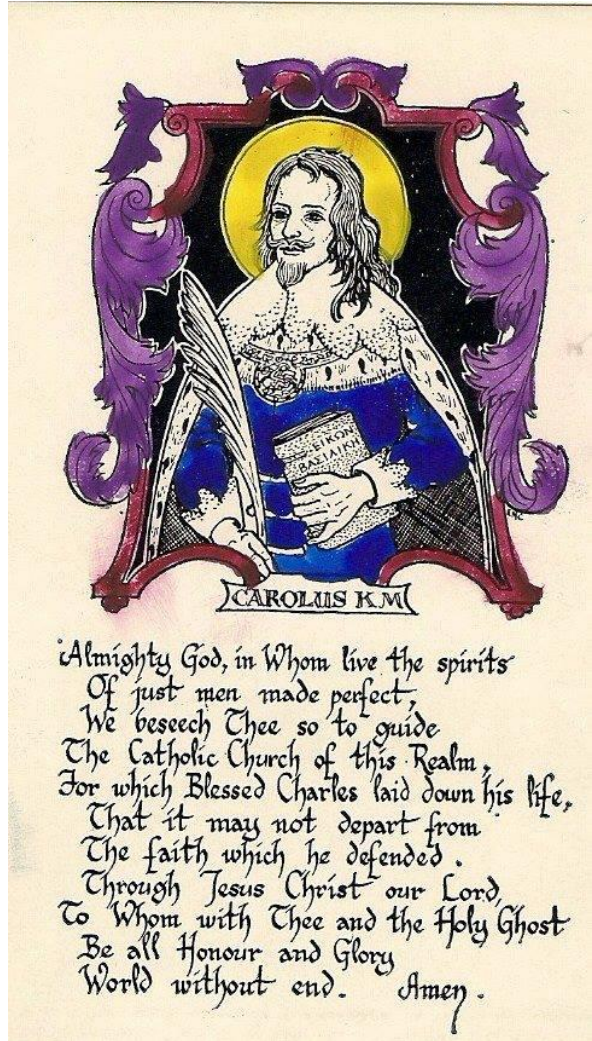 ΕΙΚΩΝ
ΒΑΣΙΛΙΚΗ
CAROLUS K M
Almighty God, in Whom live the spirits
Of just men made perfect,
We beseech Thee so to guide
The Catholic Church of this Realm,
For which Blessed Charles laid down his life,
That it may not depart from
The faith which he defended.
Through Jesus Christ our Lord,
To Whom with Thee and the Holy Ghost
Be all Honour and Glory
World without end. Amen.